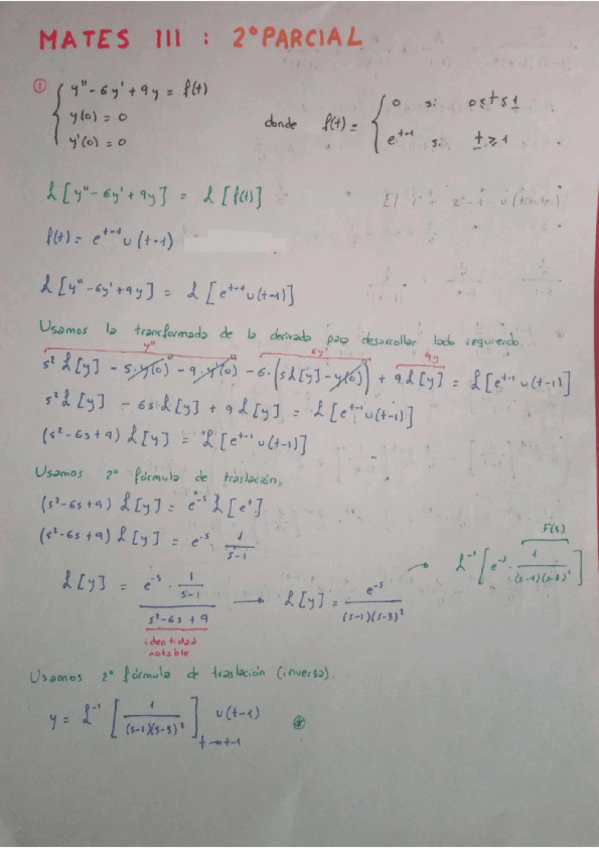 MATES III : 2º PARCIAL
① { y'' - 6y' + 9y = f(t)
y(0) = 0
y'(0) = 0
donde f(t) = { 0 si 0 ≤ t ≤ 1
e^{t-1} si t ≥ 1
ℒ[y'' - 6y' + 9y] = ℒ[f(t)]
f(t) = e^{t-1} u(t-1)
ℒ[y'' - 6y' + 9y] = ℒ[e^{t-1} u(t-1)]
Usamos la transformada de la derivada para desarrollar lado izquierdo.
y'' 6y' 9y
s² ℒ[y] - s·y(0) - 9·y(0) - 6·(sℒ[y] - y(0)) + 9ℒ[y] = ℒ[e^{t-1} u(t-1)]
0 0 0
s² ℒ[y] - 6s ℒ[y] + 9 ℒ[y] = ℒ[e^{t-1} u(t-1)]
(s² - 6s + 9) ℒ[y] = ℒ[e^{t-1} u(t-1)]
Usamos 2ª fórmula de traslación,
(s² - 6s + 9) ℒ[y] = e^{-s} ℒ[e^t]
(s² - 6s + 9) ℒ[y] = e^{-s} · 1/(s-1)
ℒ[y] = (e^{-s} · 1/(s-1)) / (s² - 6s + 9) → ℒ[y] = e^{-s} / ((s-1)(s-3)²) → ℒ^{-1}[e^{-s} · 1/((s-1)(s-3)²)]
F(s)
identidad
notable
Usamos 2ª fórmula de traslación (inversa).
y = ℒ^{-1}[1/((s-1)(s-3)²)]_{t→t-1} u(t-1) ⊛